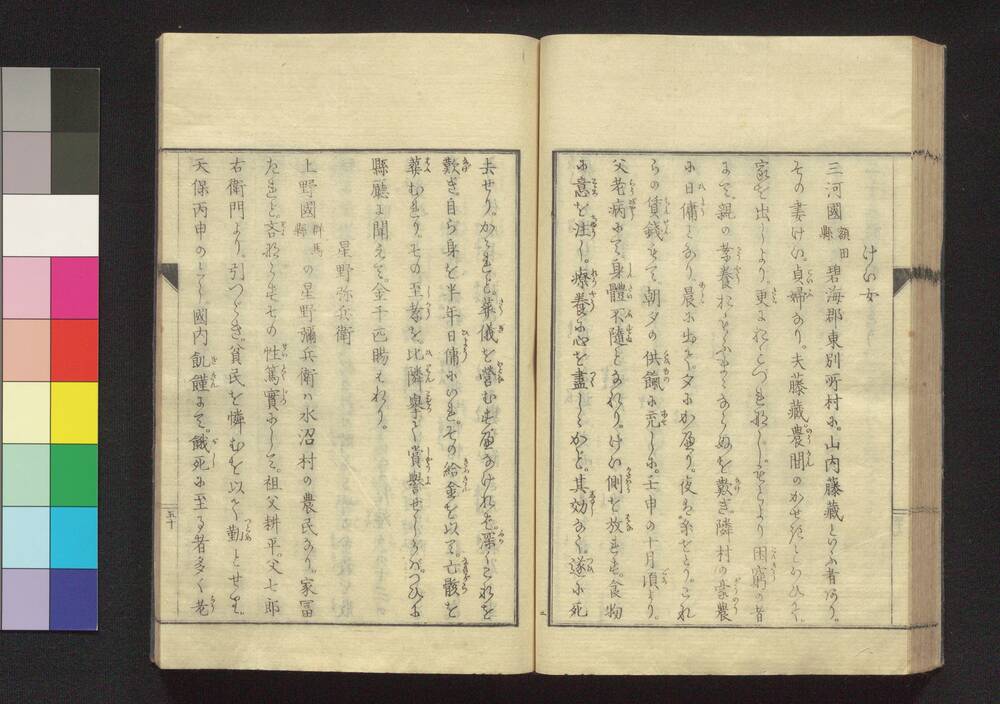 けい女
三河國額田縣碧海郡東別所村に。山内藤藏といふ者あり。
その妻けい。貞婦なり。夫藤藏。農間のかせぎとらひ
家を出しより。更におとづれなし。もとより困窮の者
にて。親の養ひを歎き。隣村の豪農
に日傭となり。晨に出て。夕にかへり。夜は糸をとり。これ
らの賃錢もて。朝夕の供餼に充しに。壬申の十月頃より。
父老病にて。身體不隨となれり。けい側を放れず。食物
に意を注し。療養に心を盡しゝかど。其効なく。遂に死
去せり。かゝれど。葬儀を營むすべなければ。深くこれを
歎き自ら身を半年日傭にいれ。その給金を以て。亡骸を
葬むれり。その至孝を。比隣擧て賞譽せしかば。つひに
縣廳に聞えて。金千匹賜はれり。
星野弥兵衛
上野國群馬縣の星野彌兵衛ハ水沼村の農民なり。家冨
たれど。吝ならずその性篤實にして。祖父耕平。父七郎
右衛門より。引つゞき。貧民を憐むを以て。勤とせり。
天保丙申のとし。國内飢饉にて。餓死に至る者多く老
五十